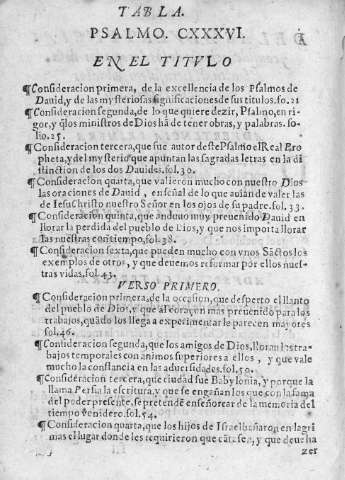 TABLA.
PSALMO. CXXXVI.
EN EL TITVLO
¶Consideracion primera, de la excellencia de los Psalmos de
Dauid, y de las mysteriosas significaciones de sus titulos. fo. 21
¶Consideracion segunda, de lo que quiere dezir, Psalmo, en ri-
gor, y q̃ los ministros de Dios hã de tener obras, y palabras. fo-
lio. 25.
¶Consideracion tercera, que fue autor deste Psalmo el Real Pro
pheta, y del mysterio que apuntan las sagradas letras en la di
stinction de los dos Dauides. fol. 30.
¶Consideracion quarta, que valieron mucho con nuestro Dios
las oraciones de Dauid, en señal de lo que auian de valer las
de Iesu Christo nuestro Señor en los ojos de su padre. fol. 33.
¶Consideracion quinta, que anduuo muy preuenido Dauid en
llorar la perdida del pueblo de Dios, y que nos importa llorar
las nuestras con tiempo, fol. 38.
¶Consideracion sexta, que pueden mucho con vnos Sãctos los
exemplos de otros, y que deuemos reformar por ellos nues-
tras vidas, fol. 43.
VERSO PRIMERO.
¶Consideracion primera, de la occasion, que desperto el llanto
del pueblo de Dios, y que al coraçon mas preuenido para los
trabajos, quãdo los llega a experimentar le parecen mayores
fol. 46.
¶Consideracion segunda, que los amigos de Dios, lloran los tra-
bajos temporales con animos superiores a ellos, y que vale
mucho la constancia en las aduersidades. fol. 50.
¶Consideracion tercera, que ciudad fue Babylonia, y porque la
llama Persia la escritura, y que se engañan los que con la fama
del poder presente, se pretendẽ enseñorear de la memoria del
tiempo venidero. fol. 54.
¶Consideracion quarta, que los hijos de Israel bañaron en lagri
mas el lugar donde les requirieron que cãtasen, y que deue ha
zer